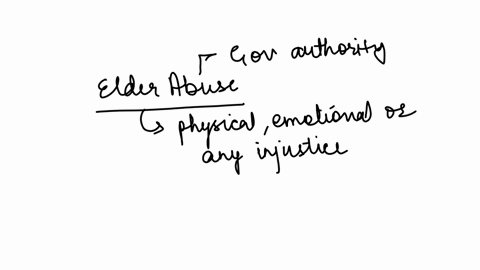 Gov authority
Elder Abuse
physical, emotional or
any injustice